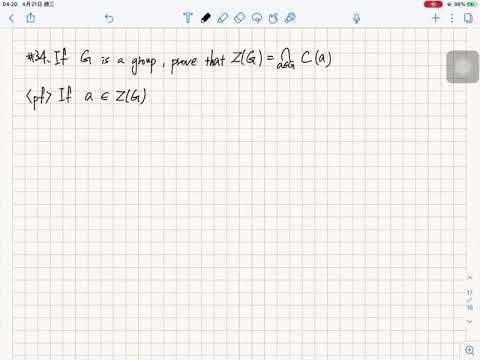 04:20 4月21日 週三
98%
#34. If G is a group, prove that Z(G) = ∩ C(a)
a∈G
<pf> If a ∈ Z(G)
17
/
18